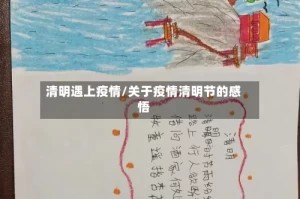 清明遇上疫情/关于疫情清明节的感
悟
清明
清明时节雨纷
路上行人欲断
借问酒家何处
牧童遥指杏花